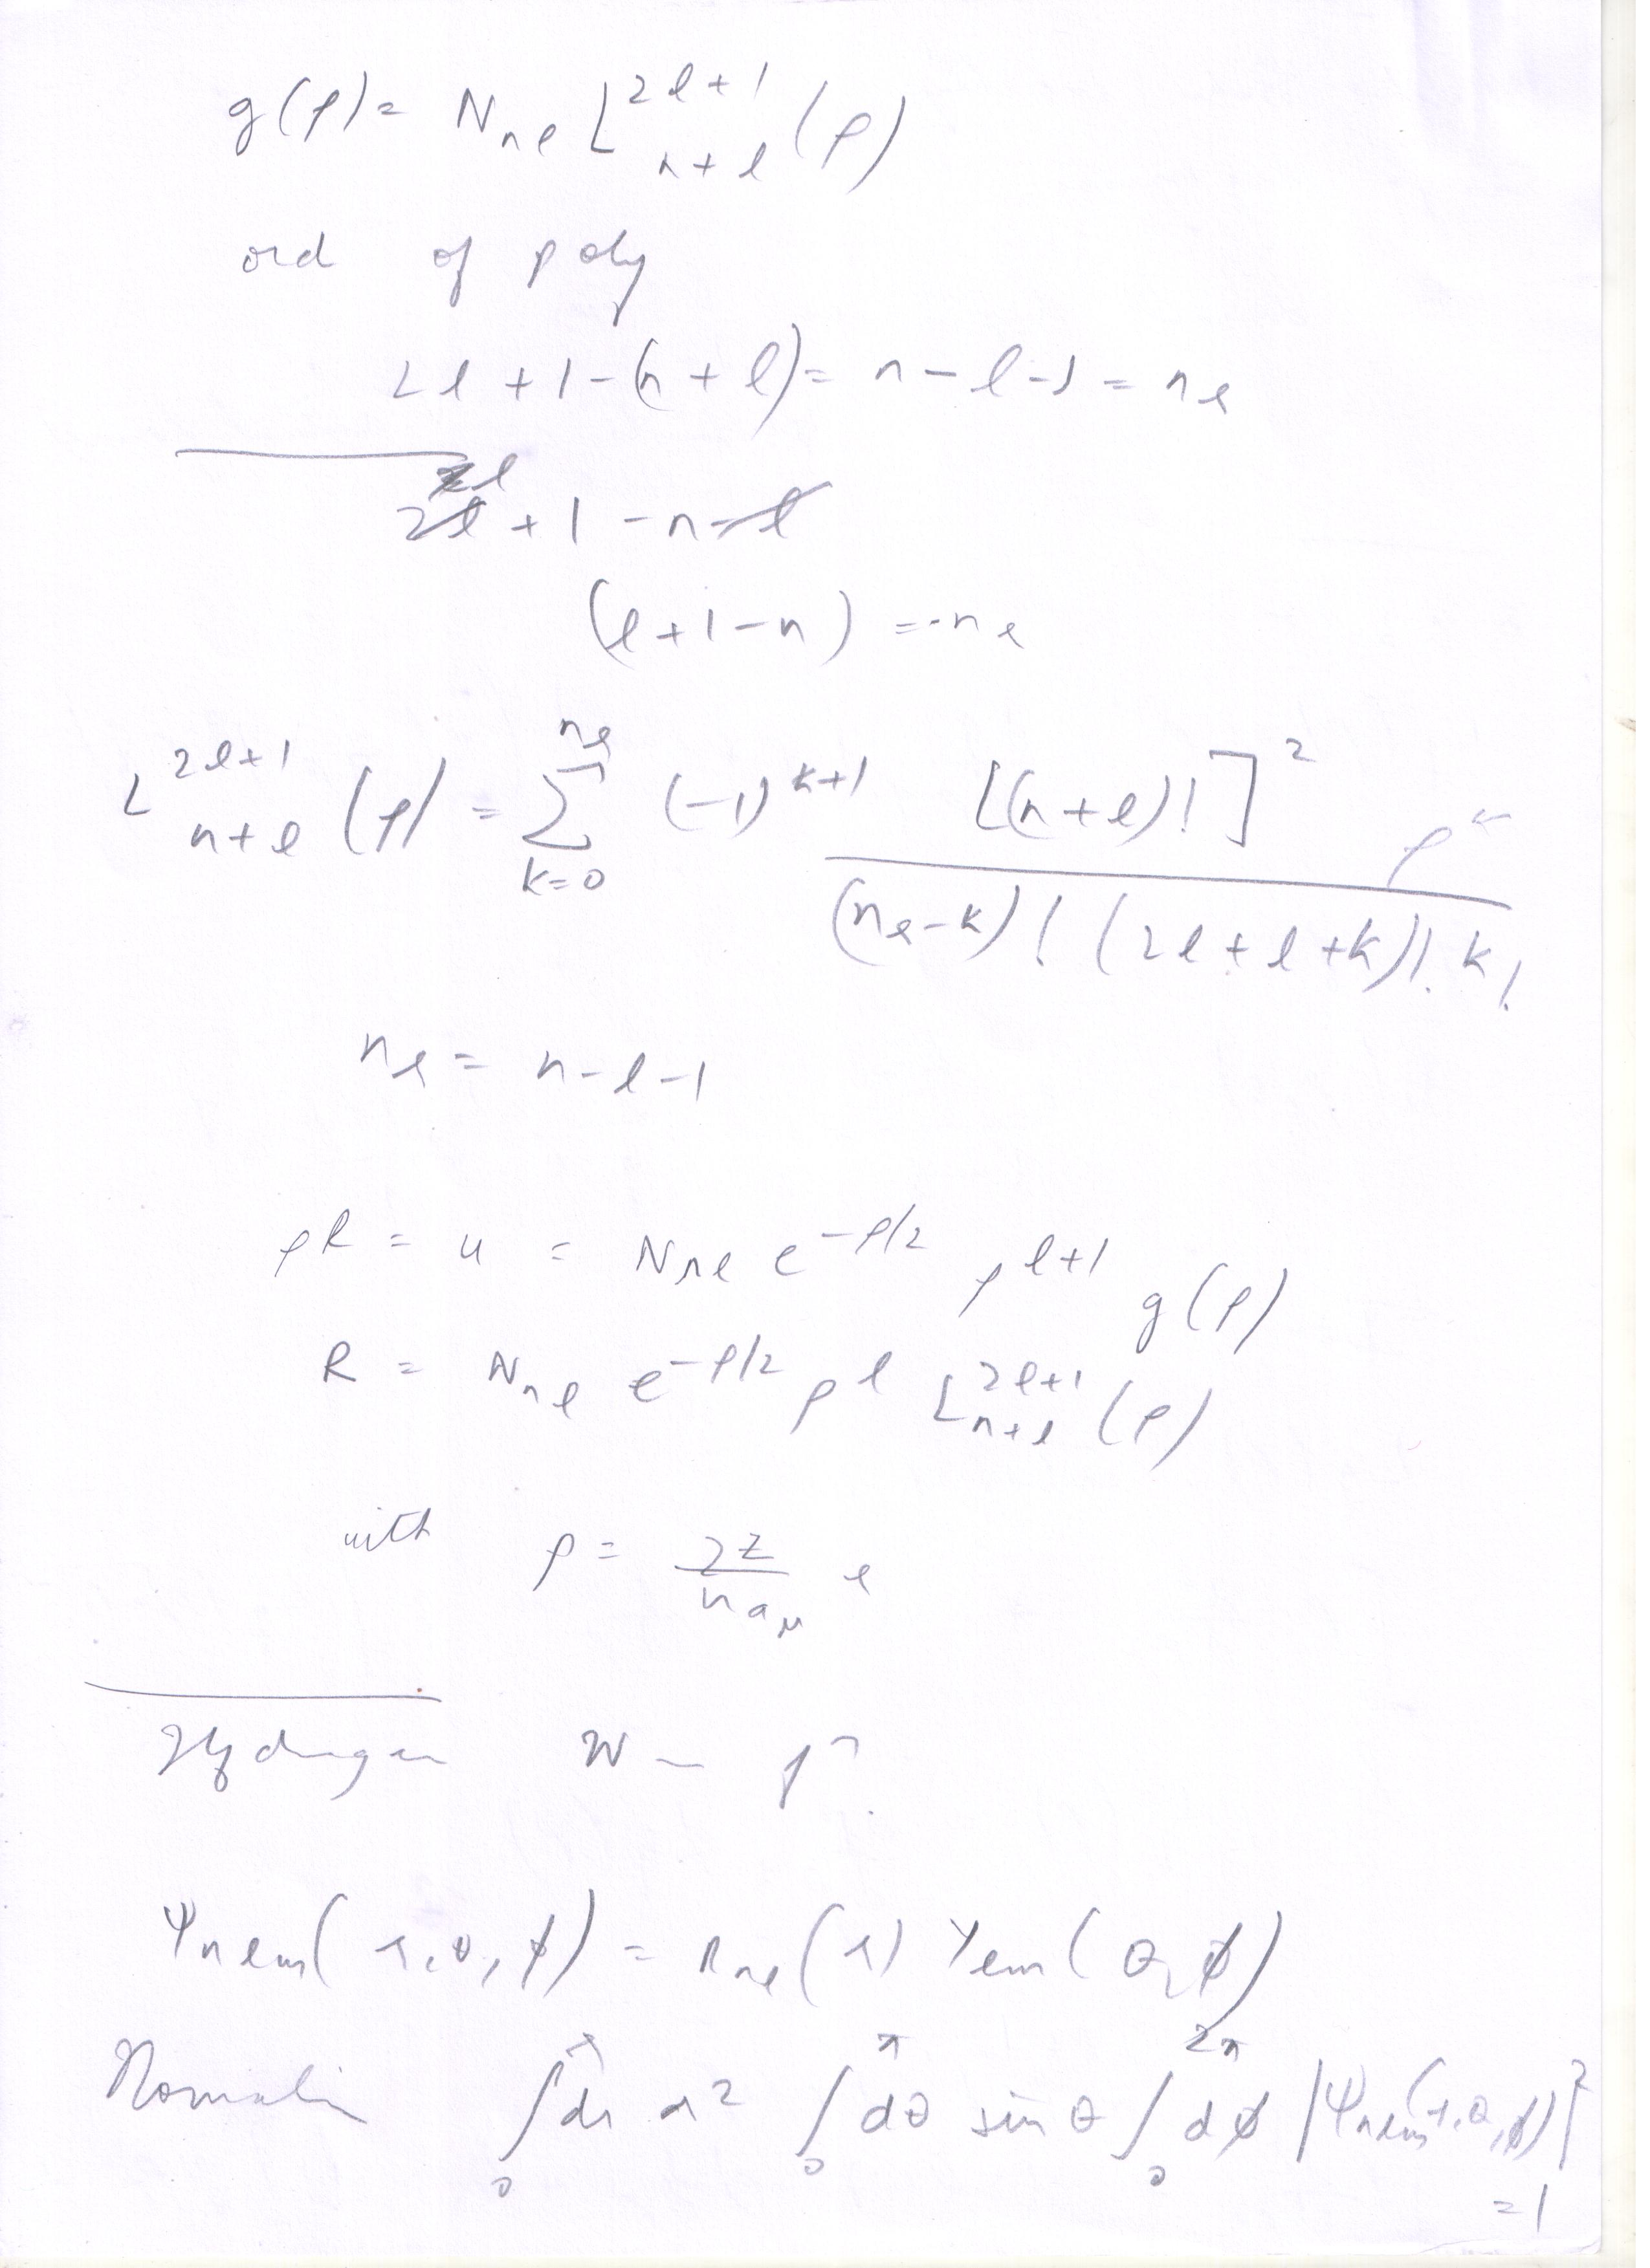 g(ρ) = N_{nℓ} L^{2ℓ+1}_{n+ℓ}(ρ)
ord of poly
2ℓ + 1 - (n + ℓ) = n - ℓ - 1 = n_r
2ℓ + 1 - n - ℓ
(ℓ + 1 - n) = -n_r
L^{2ℓ+1}_{n+ℓ}(ρ) = \sum_{k=0}^{n_r} (-1)^{k+1} \frac{[(n+ℓ)!]^2 ρ^k}{(n_r-k)! (2ℓ+1+k)! k!}
n_r = n - ℓ - 1
ρR = u = N_{nℓ} e^{-ρ/2} ρ^{ℓ+1} g(ρ)
R = N_{nℓ} e^{-ρ/2} ρ^ℓ L^{2ℓ+1}_{n+ℓ}(ρ)
with ρ = \frac{2Z}{n a_μ} r
Hydrogen W
ψ_{nℓm}(r, θ, φ) = R_{nℓ}(r) Y_{ℓm}(θ, φ)
\int_0^∞ dr r^2 \int_0^π dθ sin θ \int_0^{2π} dφ |ψ_{nℓm}(r, θ, φ)|^2
= 1